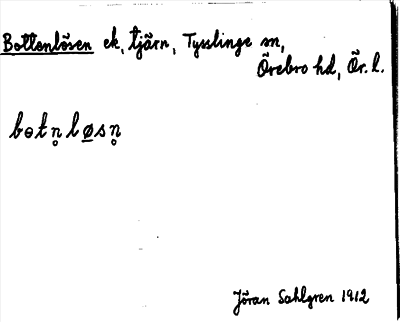 Bottenlösen ek, tjärn, Tysslinge sn,
Örebro hd, Ör. l.
bɵtn̥løsn̥
Jöran Sahlgren 1912